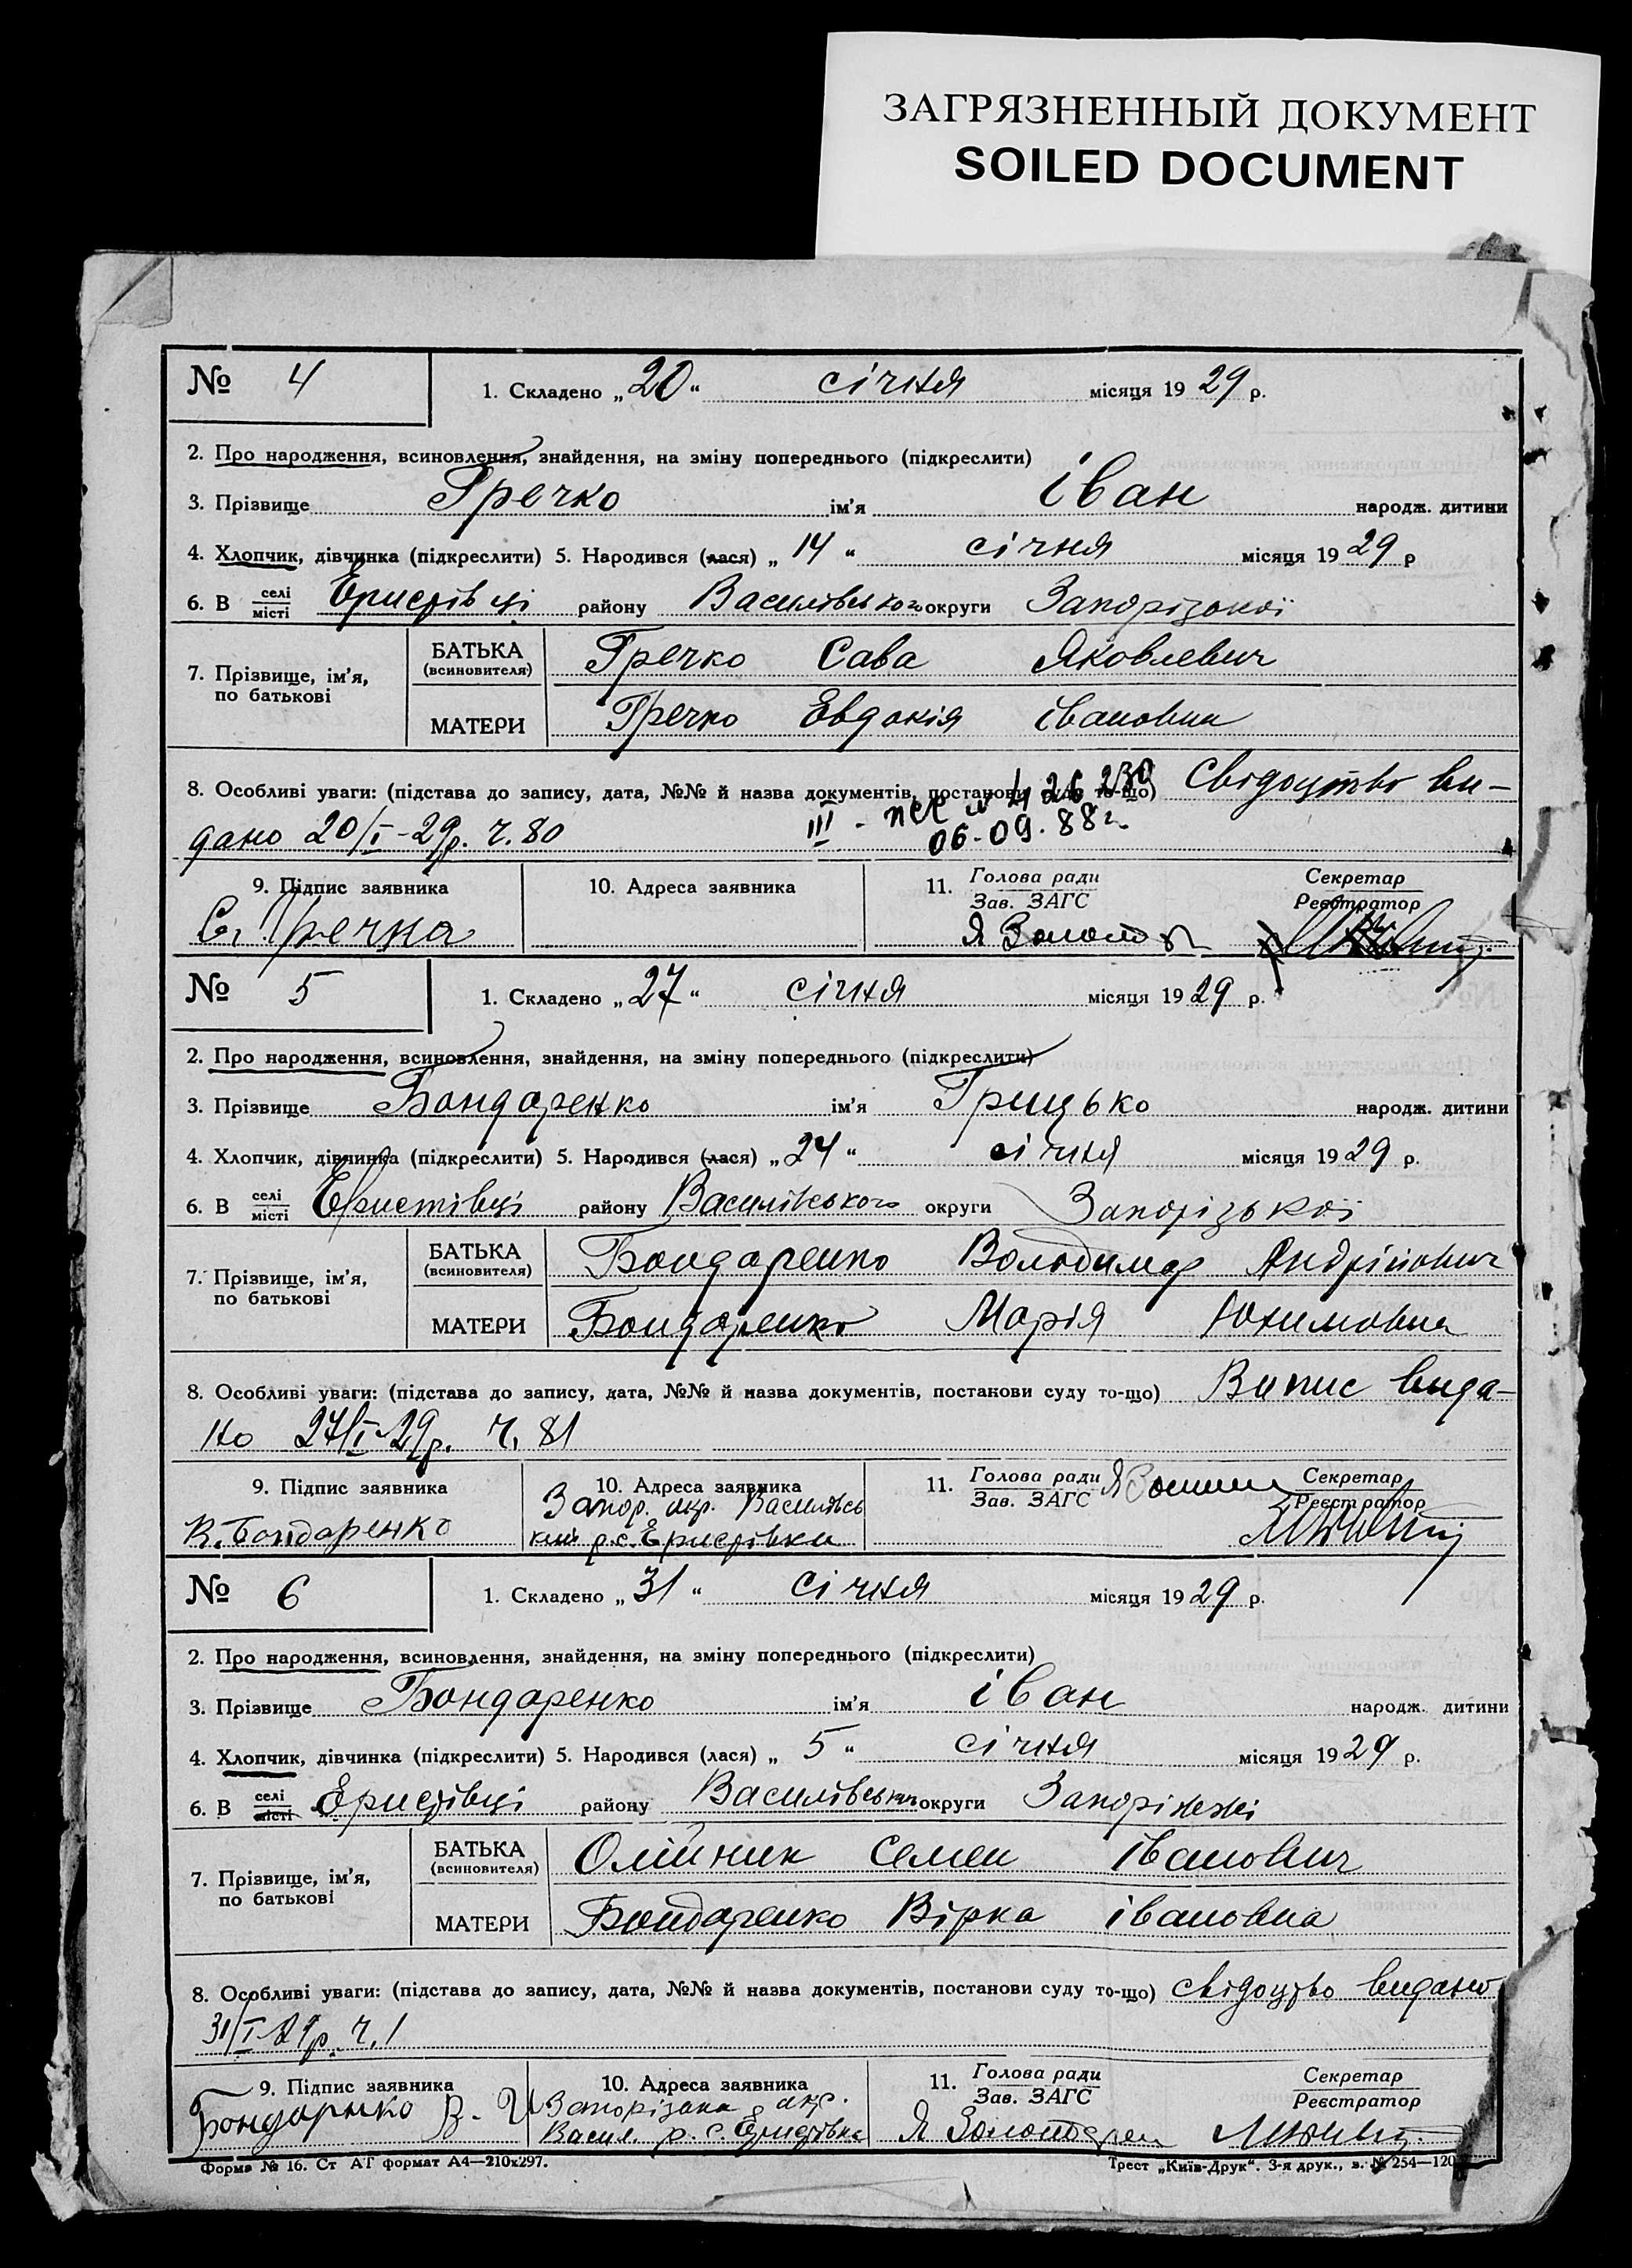 ЗАГРЯЗНЕННЫЙ ДОКУМЕНТ
SOILED DOCUMENT
№ 4
1. Складено „20“ січня місяця 1929 р.
2. Про народження, всиновлення, знайдення, на зміну попереднього (підкреслити)
3. Прізвище Гречко ім'я Іван народж. дитини
4. Хлопчик, дівчинка (підкреслити) 5. Народився (лася) „14“ січня місяця 1929 р
6. В селі/місті Єристівці району Василівського округи Запорізької
7. Прізвище, ім'я, по батькові
БАТЬКА (всиновителя) Гречко Сава Яковлевич
МАТЕРИ Гречко Евдокія івановна
8. Особливі уваги: (підстава до запису, дата, №№ й назва документів, постанови суду то-що) Свідоцтво ви-
дано 20/I-29р. ч. 80
III - 06-09.88г.
9. Підпис заявника 10. Адреса заявника 11. Голова ради Зав. ЗАГС Секретар Реєстратор
С. Гречка
№ 5
1. Складено „27“ січня місяця 1929 р.
2. Про народження, всиновлення, знайдення, на зміну попереднього (підкреслити)
3. Прізвище Бондаренко ім'я Грицько народж. дитини
4. Хлопчик, дівчинка (підкреслити) 5. Народився (лася) „24“ січня місяця 1929 р.
6. В селі/місті Єристівці району Василівського округи Запорізької
7. Прізвище, ім'я, по батькові
БАТЬКА (всиновителя) Бондаренко Володимир Андрійович
МАТЕРИ Бондаренко Марія Юхимовна
8. Особливі уваги: (підстава до запису, дата, №№ й назва документів, постанови суду то-що) Випис вида-
но 27/I-29р. ч. 81
9. Підпис заявника 10. Адреса заявника 11. Голова ради Зав. ЗАГС Секретар Реєстратор
В. Бондаренко Запор. окр. Василівсь
кий р. с. Єристівка
№ 6
1. Складено „31“ січня місяця 1929 р.
2. Про народження, всиновлення, знайдення, на зміну попереднього (підкреслити)
3. Прізвище Бондаренко ім'я іван народж. дитини
4. Хлопчик, дівчинка (підкреслити) 5. Народився (лася) „5“ січня місяця 1929 р.
6. В селі/місті Єристівці району Василівського округи Запоріжжі
7. Прізвище, ім'я, по батькові
БАТЬКА (всиновителя) Олійник Семен іванович
МАТЕРИ Бондаренко Вірка івановна
8. Особливі уваги: (підстава до запису, дата, №№ й назва документів, постанови суду то-що) свідоцтво видано
31/I 29р. ч. 1
9. Підпис заявника 10. Адреса заявника 11. Голова ради Зав. ЗАГС Секретар Реєстратор
Бондаренко В. И Запорізька окр.
Васил. р. с. Єристівка
Форма № 16. Ст АГ формат А4—210x297.
Трест „Київ-Друк“. 3-я друк., з. № 254—120